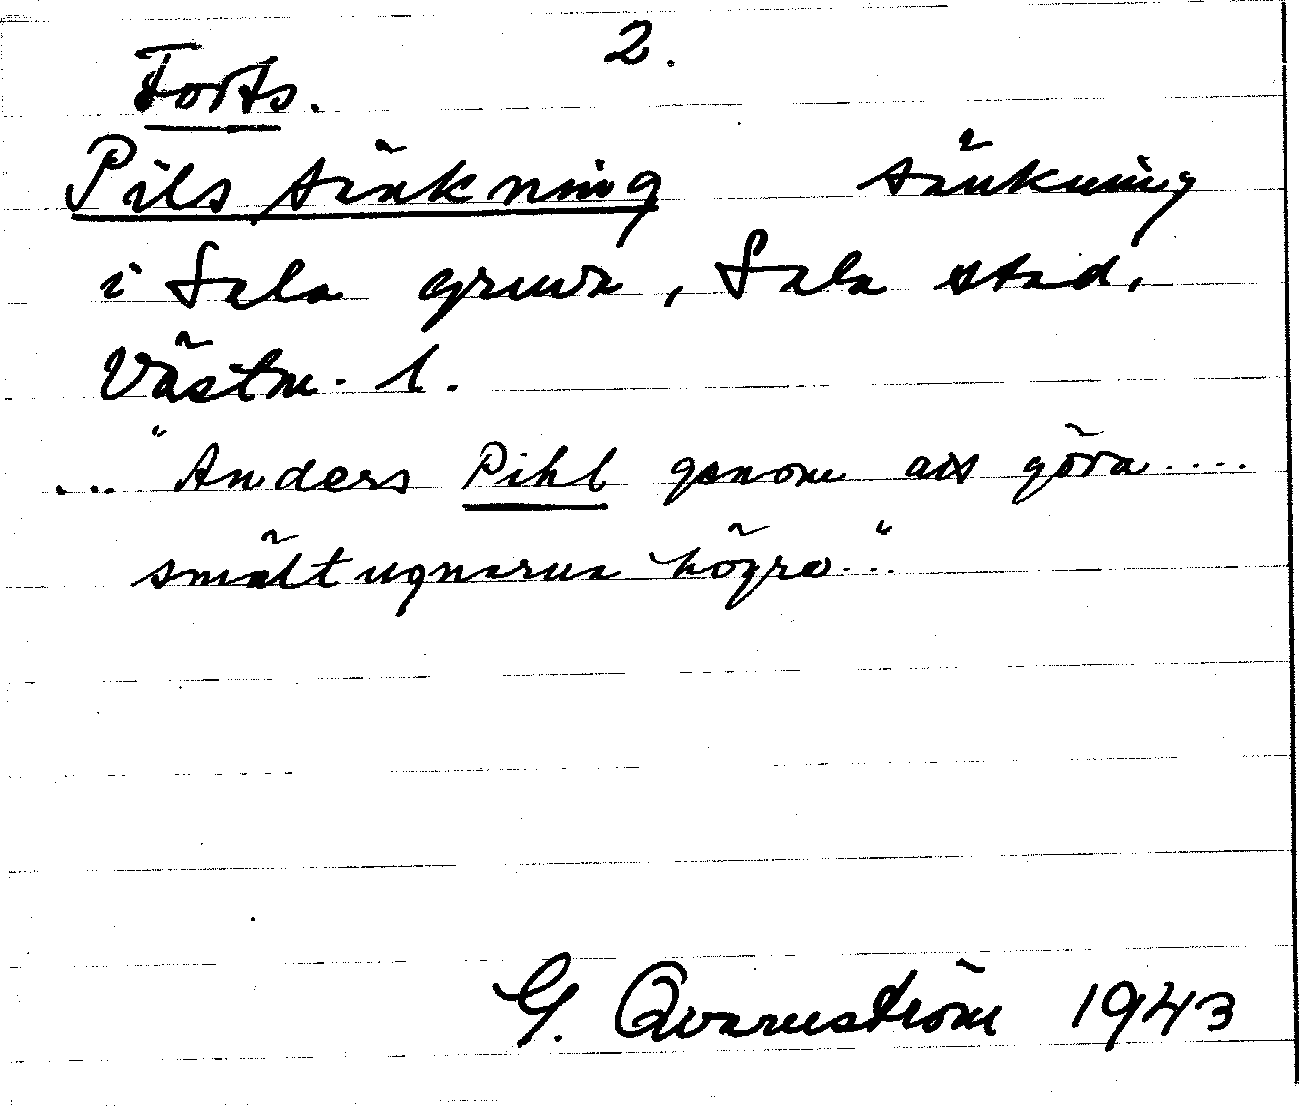 2.
Forts.
Pils sänkning sänkning
i Sala gruva, Sala stad,
Västm. l.
... "Anders Pihl genom att göra....
smältugnarna högre..."
G. Qvarnström 1943